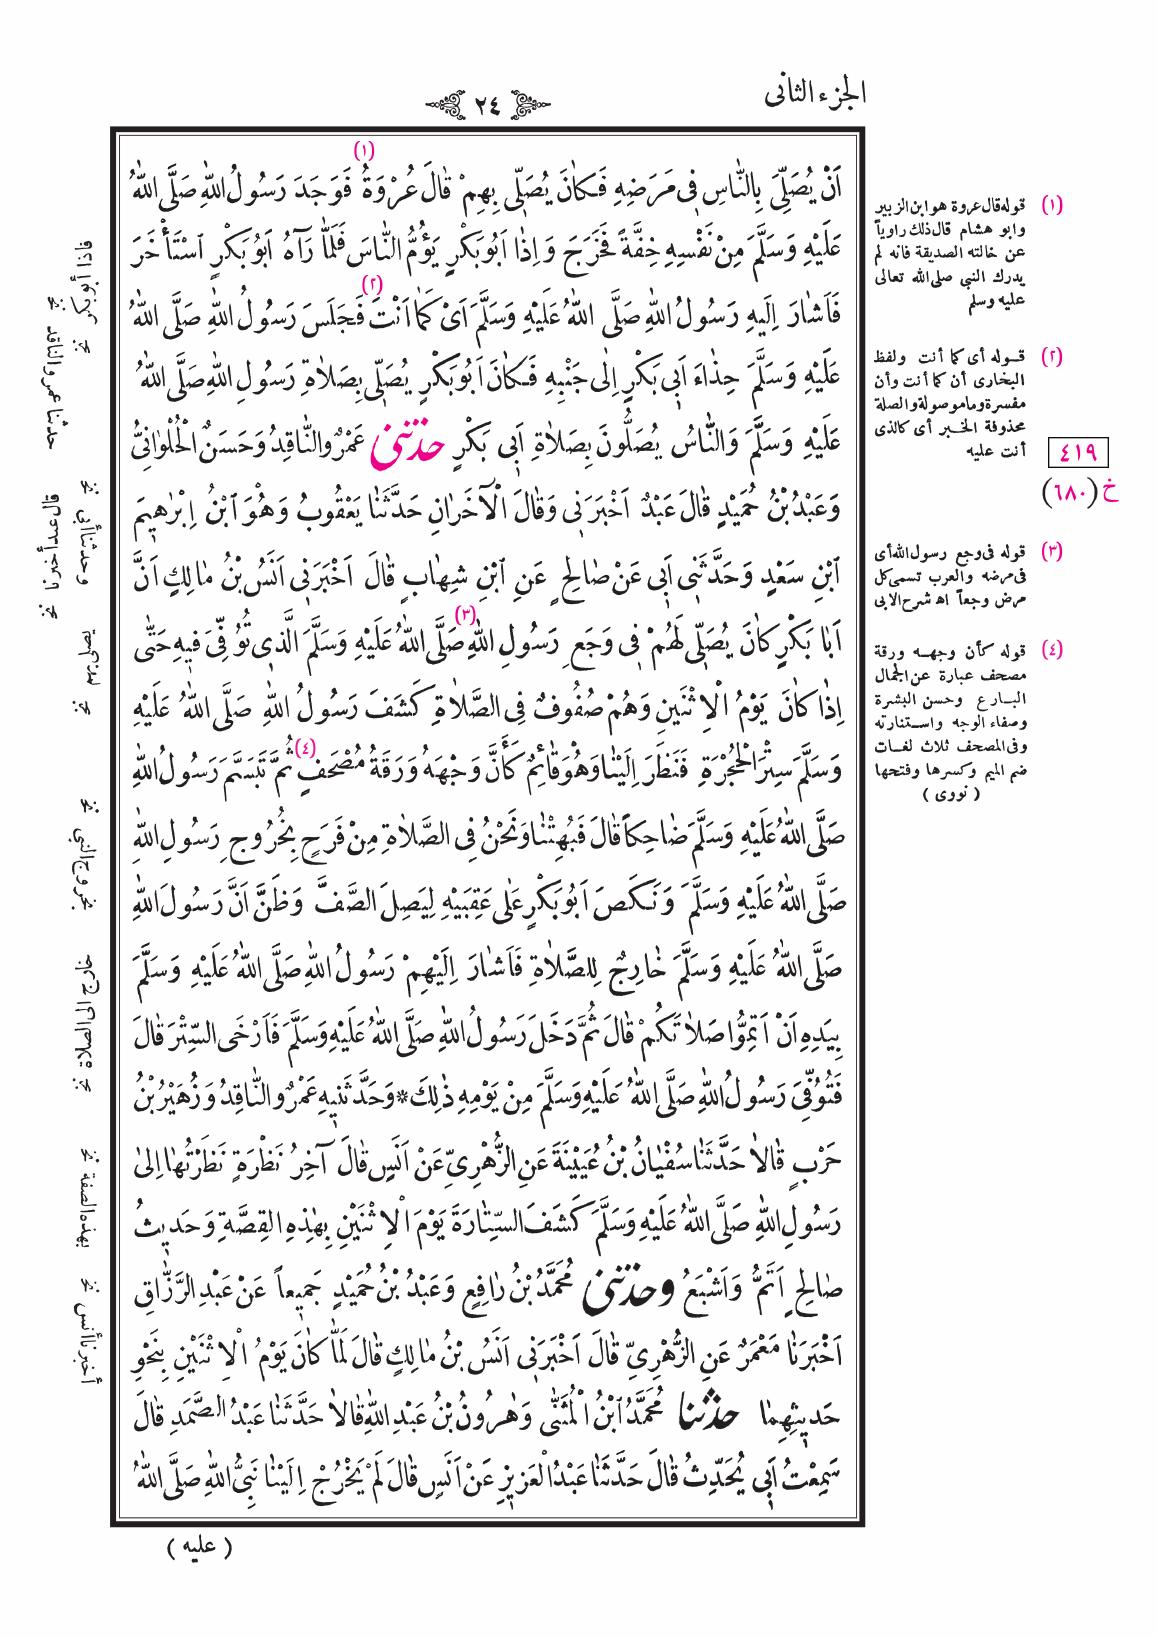 الجزء الثانى
٢٤
اَنْ يُصَلِّىَ بِالنَّاسِ فِى مَرَضِهِ فَكَانَ يُصَلِّى بِهِمْ قَالَ عُرْوَةُ (١) فَوَجَدَ رَسُولُ اللهِ صَلَّى اللهُ
عَلَيْهِ وَسَلَّمَ مِنْ نَفْسِهِ خِفَّةً فَخَرَجَ وَ اِذَا اَبُو بَكْرٍ يَؤُمُّ النَّاسَ فَلَمَّا رَآهُ اَبُو بَكْرٍ اسْتَأْخَرَ
فَاَشَارَ اِلَيهِ رَسُولُ اللهِ صَلَّى اللهُ عَلَيْهِ وَسَلَّمَ اَىْ كَمَا اَنْتَ (٢) فَجَلَسَ رَسُولُ اللهِ صَلَّى اللهُ
عَلَيْهِ وَسَلَّمَ حِذَاءَ اَبِى بَكْرٍ اِلَى جَنْبِهِ فَكَانَ اَبُو بَكْرٍ يُصَلِّى بِصَلَاةِ رَسُولِ اللهِ صَلَّى اللهُ
عَلَيْهِ وَسَلَّمَ وَالنَّاسُ يُصَلُّونَ بِصَلَاةِ اَبِى بَكْرٍ حدثنى عَمْرٌو النَّاقِدُ وَحَسَنٌ الْحُلْوَانِىُّ
وَعَبْدُ بْنُ حُمَيْدٍ قَالَ عَبْدٌ اَخْبَرَنِى وَقَالَ الْآخَرَانِ حَدَّثَنَا يَعْقُوبُ وَهُوَ ابْنُ اِبْرٰهِيمَ
ابْنِ سَعْدٍ وَحَدَّثَنِى اَبِى عَنْ صَالِحٍ عَنِ ابْنِ شِهَابٍ قَالَ اَخْبَرَنِى اَنَسُ بْنُ مَالِكٍ اَنَّ
اَبَا بَكْرٍ كَانَ يُصَلِّى لَهُمْ فِى وَجَعِ رَسُولِ اللهِ (٣) صَلَّى اللهُ عَلَيْهِ وَسَلَّمَ الَّذِى تُوُفِّىَ فِيهِ حَتَّى
اِذَا كَانَ يَوْمُ الْاِثْنَيْنِ وَهُمْ صُفُوفٌ فِى الصَّلَاةِ كَشَفَ رَسُولُ اللهِ صَلَّى اللهُ عَلَيْهِ
وَسَلَّمَ سِتْرَ الْحُجْرَةِ فَنَظَرَ اِلَيْنَا وَهُوَ قَائِمٌ كَأَنَّ وَجْهَهُ وَرَقَةُ مُصْحَفٍ (٤) ثُمَّ تَبَسَّمَ رَسُولُ اللهِ
صَلَّى اللهُ عَلَيْهِ وَسَلَّمَ ضَاحِكاً قَالَ فَبُهِتْنَا وَنَحْنُ فِى الصَّلَاةِ مِنْ فَرَحٍ بِخُرُوجِ رَسُولِ اللهِ
صَلَّى اللهُ عَلَيْهِ وَسَلَّمَ وَنَكَصَ اَبُو بَكْرٍ عَلَى عَقِبَيْهِ لِيَصِلَ الصَّفَّ وَظَنَّ اَنَّ رَسُولَ اللهِ
صَلَّى اللهُ عَلَيْهِ وَسَلَّمَ خَارِجٌ لِلصَّلَاةِ فَاَشَارَ اِلَيْهِمْ رَسُولُ اللهِ صَلَّى اللهُ عَلَيْهِ وَسَلَّمَ
بِيَدِهِ اَنْ اَتِمُّوا صَلَاتَكُمْ قَالَ ثُمَّ دَخَلَ رَسُولُ اللهِ صَلَّى اللهُ عَلَيْهِ وَسَلَّمَ فَاَرْخَى السِّتْرَ قَالَ
فَتُوُفِّىَ رَسُولُ اللهِ صَلَّى اللهُ عَلَيْهِ وَسَلَّمَ مِنْ يَوْمِهِ ذٰلِكَ * وَحَدَّثَنِيهِ عَمْرٌو النَّاقِدُ وَزُهَيْرُ بْنُ
حَرْبٍ قَالَا حَدَّثَنَا سُفْيَانُ بْنُ عُيَيْنَةَ عَنِ الزُّهْرِىِّ عَنْ اَنَسٍ قَالَ آخِرُ نَظْرَةٍ نَظَرْتُهَا اِلَى
رَسُولِ اللهِ صَلَّى اللهُ عَلَيْهِ وَسَلَّمَ كَشَفَ السِّتَارَةَ يَوْمَ الْاِثْنَيْنِ بِهٰذِهِ الْقِصَّةِ وَحَدِيثُ
صَالِحٍ اَتَمُّ وَاَشْبَعُ وحدثنى مُحَمَّدُ بْنُ رَافِعٍ وَعَبْدُ بْنُ حُمَيْدٍ جَمِيعاً عَنْ عَبْدِ الرَّزَّاقِ
اَخْبَرَنَا مَعْمَرٌ عَنِ الزُّهْرِىِّ قَالَ اَخْبَرَنِى اَنَسُ بْنُ مَالِكٍ قَالَ لَمَّا كَانَ يَوْمُ الْاِثْنَيْنِ بِنَحْوِ
حَدِيثِهِمَا حدثنا مُحَمَّدُ ابْنُ الْمُثَنَّى وَهٰرُونُ بْنُ عَبْدِ اللهِ قَالَا حَدَّثَنَا عَبْدُ الصَّمَدِ قَالَ
سَمِعْتُ اَبِى يُحَدِّثُ قَالَ حَدَّثَنَا عَبْدُ الْعَزِيزِ عَنْ اَنَسٍ قَالَ لَمْ يَخْرُجْ اِلَيْنَا نَبِىُّ اللهِ صَلَّى اللهُ
( عليه )
(١) قوله قال عروة هو ابن الزبير
وابو هشام قال ذلك راوياً
عن خالته الصديقة فانه لم
يدرك النبى صلى الله تعالى
عليه وسلم
(٢) قوله أى كما أنت ولفظ
البخارى أن كما أنت وأن
مفسرة وما موصولة والصلة
محذوفة الخبر أى كالذى
أنت عليه
٤١٩
خ (٦٨٠)
(٣) قوله فى وجع رسول الله أى
فى مرضه والعرب تسمى كل
مرض وجعاً اه شرح الابى
(٤) قوله كأن وجهه ورقة
مصحف عبارة عن الجمال
البارع وحسن البشرة
وصفاء الوجه واستنارته
وفى المصحف ثلاث لغات
ضم الميم وكسرها وفتحها
( نووى )
فاذا أبو بكر نخ
حدثنا عمرو الناقد نخ
وحدثنا أبى نخ
قال عبد أخبرنا نخ
يصلى بهم نخ
بخروج النبى نخ
خارج الى الصلاة نخ
بهذه الصفة نخ
أخبرنا أنس نخ